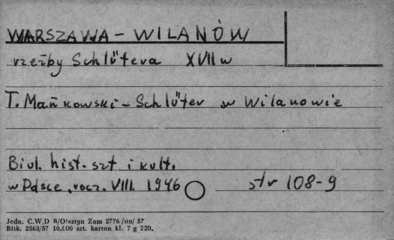 WARSZAWA - WILANÓW
rzeźby Schlütera XVII w
T. Mańkowski - Schlüter w Wilanowie
Biul. hist. szt i kult.
w Polsce, rocz. VIII. 1946 str 108-9
Jedn. C.W.D R/Olsztyn Zam 2776/on/57
Bltk. 2563/57 10.000 szt. karton kl. 7 g 220.